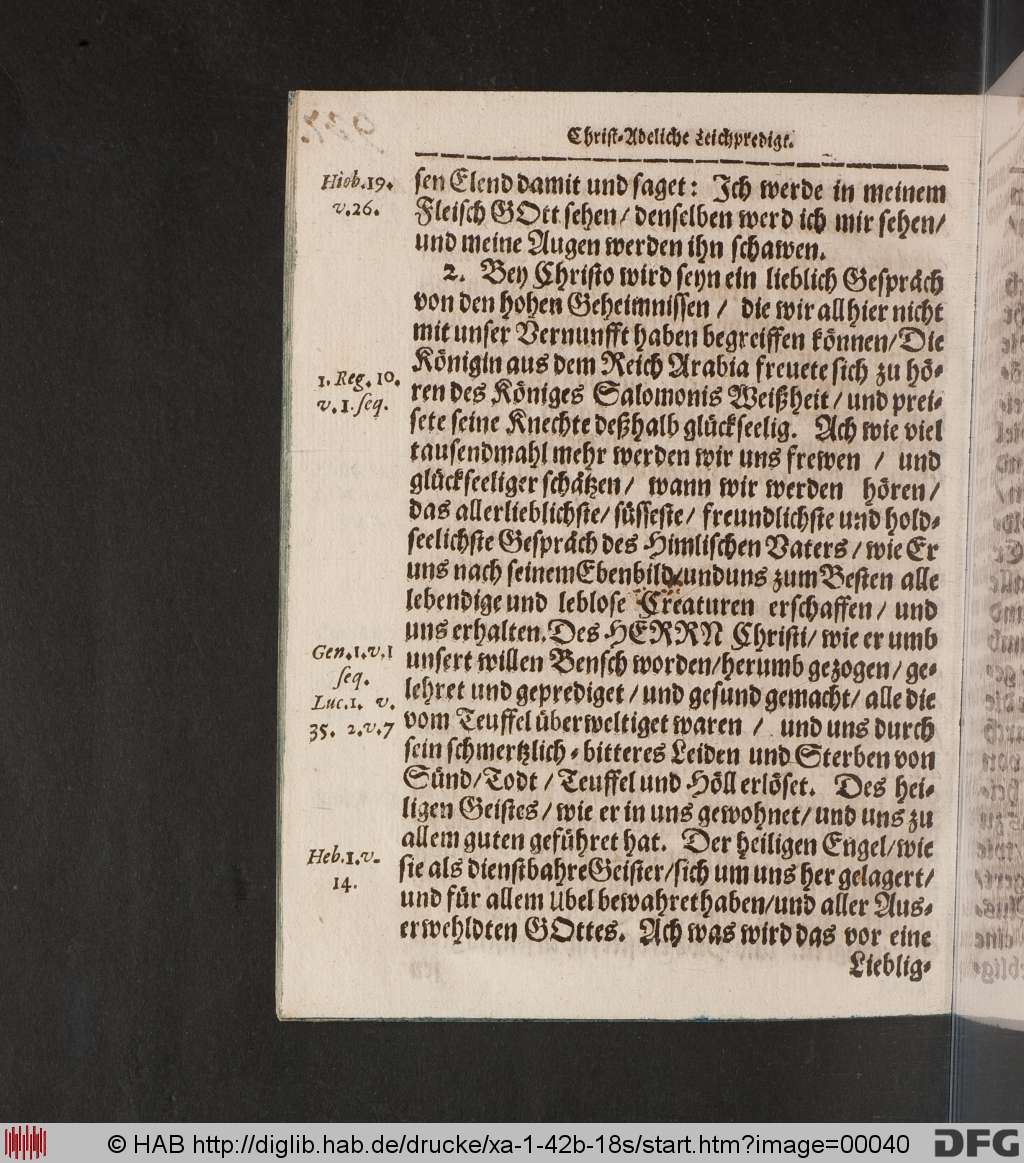 Christ-Adeliche Leichpredigt.
Hiob.19.
v.26.
sen Elend damit und saget: Ich werde in meinem
Fleisch GOtt sehen/ denselben werd ich mir sehen/
und meine Augen werden ihn schawen.
2. Bey Christo wird seyn ein lieblich Gespräch
von den hohen Geheimnissen / die wir allhier nicht
mit unser Vernunfft haben begreiffen können/Die
Königin aus dem Reich Arabia freuete sich zu hö-
1. Reg. 10.
v.1.seq.
ren des Königes Salomonis Weißheit/ und prei-
sete seine Knechte deßhalb glückseelig. Ach wie viel
tausendmahl mehr werden wir uns frewen / und
glückseeliger schätzen/ wann wir werden hören/
das allerlieblichste/ süsseste/ freundlichste und hold-
seelichste Gespräch des Himlischen Vaters/ wie Er
uns nach seinem Ebenbild/und uns zum Besten alle
lebendige und leblose Creaturen erschaffen/ und
uns erhalten. Des HERRN Christi/ wie er umb
Gen.1.v.1
seq.
Luc.1. v.
35. 2.v.7
unsert willen Bensch worden/herumb gezogen/ ge-
lehret und geprediget/ und gesund gemacht/ alle die
vom Teuffel überweltiget waren / und uns durch
sein schmertzlich-bitteres Leiden und Sterben von
Sünd/Todt / Teuffel und Höll erlöset. Des hei-
ligen Geistes/ wie er in uns gewohnet/ und uns zu
allem guten geführet hat. Der heiligen Engel/wie
Heb.1.v.
14.
sie als dienstbahre Geister/sich um uns her gelagert/
und für allem übel bewahret haben/und aller Aus-
erwehldten GOttes. Ach was wird das vor eine
Lieblig-
© HAB http://diglib.hab.de/drucke/xa-1-42b-18s/start.htm?image=00040
DFG